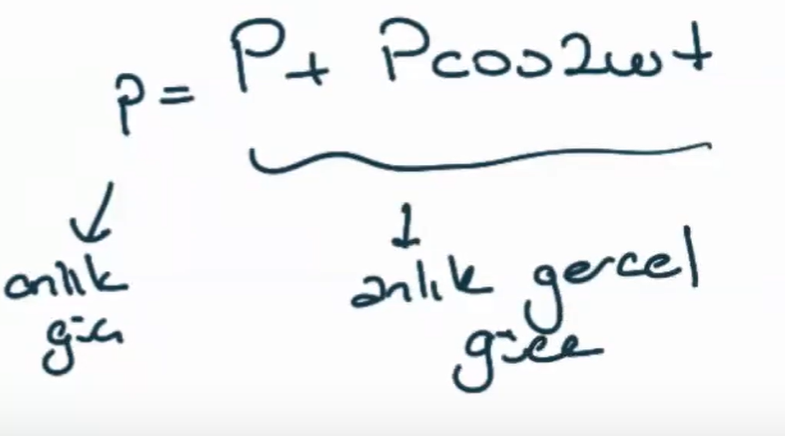 p = P + P cos2wt
anlık
güç
anlık gercel
güce